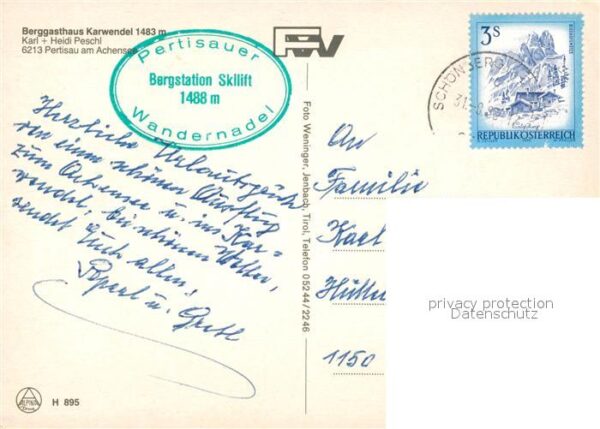 Berggasthaus Karwendel 1483 m
Karl + Heidi Peschl
6213 Pertisau am Achensee
Pertisauer
Bergstation Skilift
1488 m
Wandernadel
3 S
REPUBLIK ÖSTERREICH
SCHÖNBERG
Herzliche Urlaubsgrüße
von einem schönen Ausflug
zum Achensee u. ins Kar-
wendel, bei schönem Wetter,
sendet Euch allen!
u. Gretl
An
Familie
Karl
Hütter
1150
Foto Weninger, Jenbach, Tirol, Telefon 0 52 44 / 22 46
privacy protection
Datenschutz
ALPINA
H 895